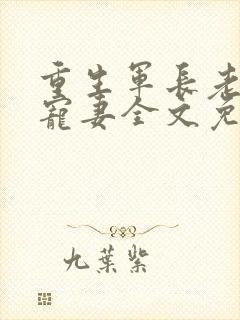 重生軍長老
寵妻全文免
九葉紫